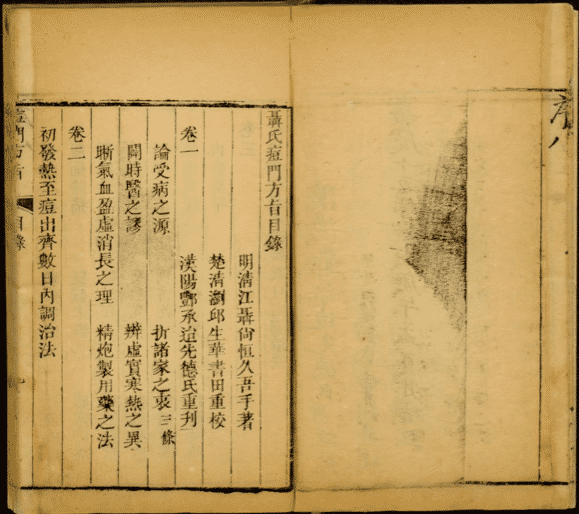 序 八
聶氏痘門方旨目錄
明清江聶尚恒久吾手著
楚清瀏邱生華書田重校
漢陽酆承迨先德氏重刋
卷一
論受病之源 折諸家之衷 三條
闢時醫之謬 辨虛實寒熱之異
晰氣血盈虛消長之理 精炮製用藥之法
卷二
初發熱至痘出齊數日內調治法
痘門方旨 目錄